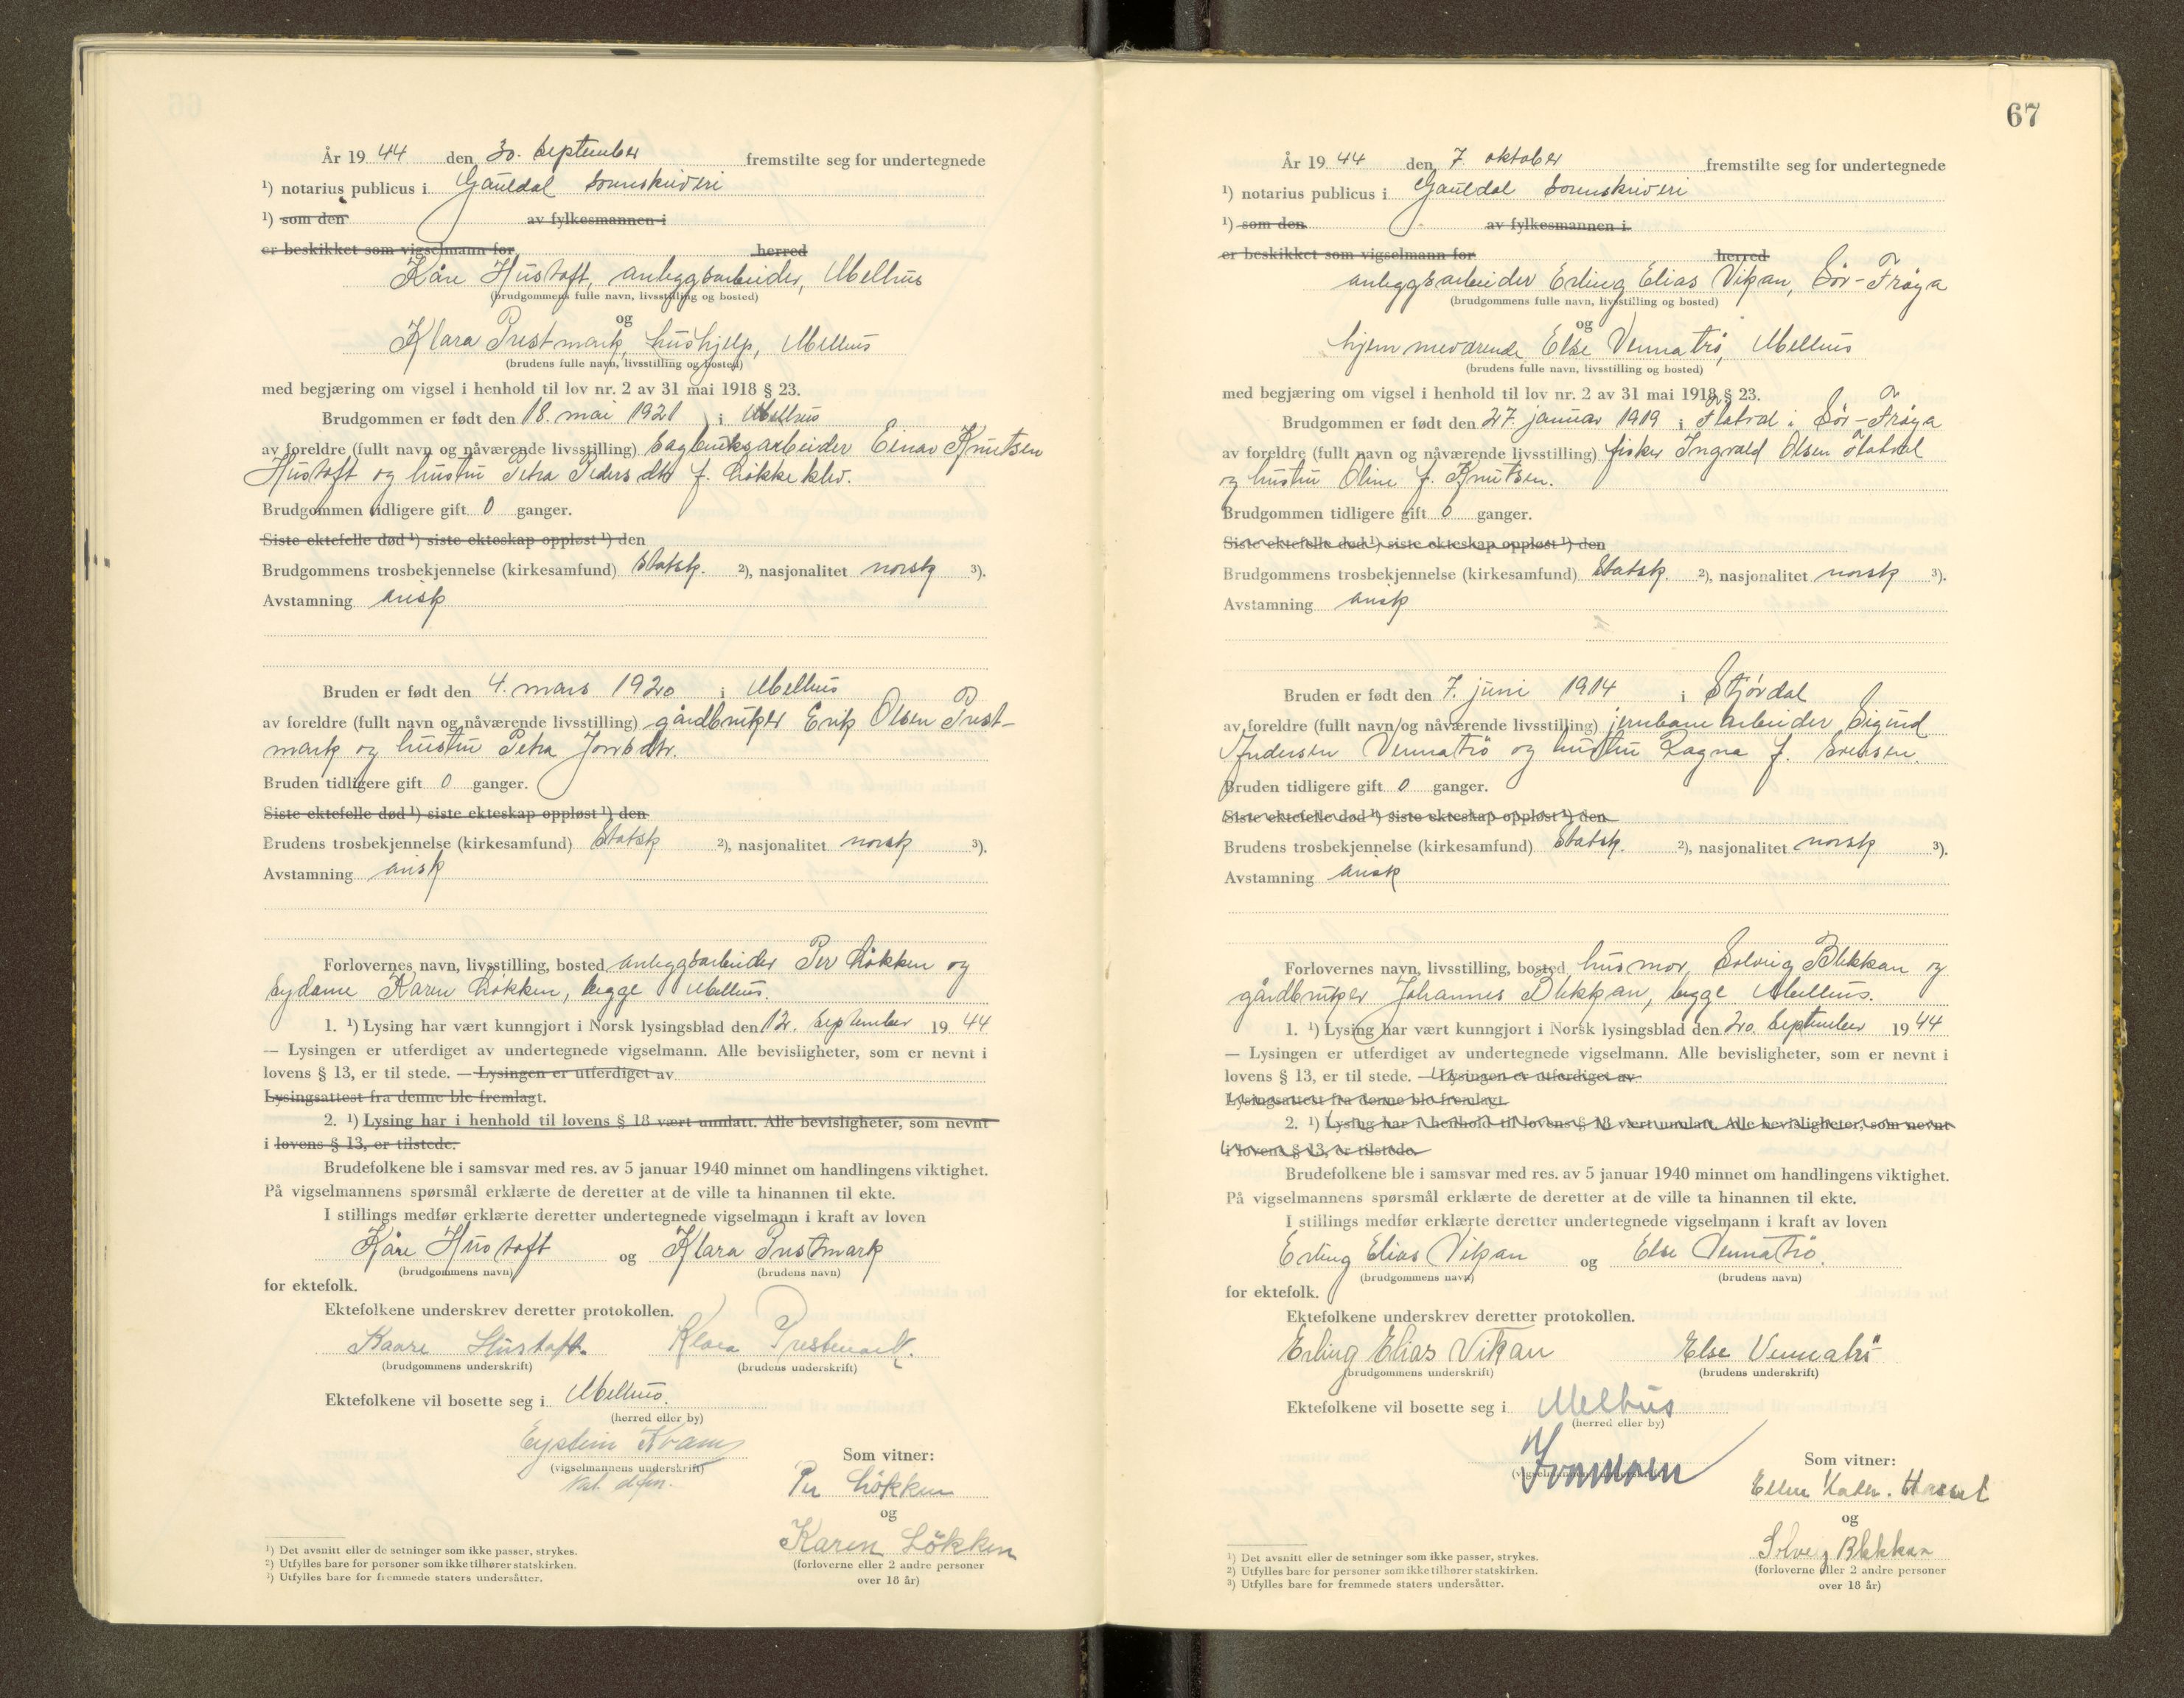 År 19 44 den 30. September fremstilte seg for undertegnede
¹) notarius publicus i Gauldal sorenskriveri
¹) som den av fylkesmannen i
er beskikket som vigselmann for herred
Kåre Hustoft, anleggsarbeider, Melhus
(brudgommens fulle navn, livsstilling og bosted)
og
Klara Prestmark, hushjelp, Melhus
(brudens fulle navn, livsstilling og bosted)
med begjæring om vigsel i henhold til lov nr. 2 av 31 mai 1918 § 23.
Brudgommen er født den 18. mai 1921 i Melhus
av foreldre (fullt navn og nåværende livsstilling) sagbruksarbeider Einar Knutsen
Hustoft og hustru Petra Pedersdtr f. Løkkeklev.
Brudgommen tidligere gift 0 ganger.
Siste ektefelle død ¹) siste ekteskap oppløst ¹) den
Brudgommens trosbekjennelse (kirkesamfund) Statsk. ²), nasjonalitet norsk ³).
Avstamning arisk
Bruden er født den 4. mars 1920 i Melhus
av foreldre (fullt navn og nåværende livsstilling) gårdbruker Erik Olsen Prest-
mark og hustru Petra Jonsdtr.
Bruden tidligere gift 0 ganger.
Siste ektefelle død ¹) siste ekteskap oppløst ¹) den
Brudens trosbekjennelse (kirkesamfund) Statsk ²), nasjonalitet norsk ³).
Avstamning arisk
Forlovernes navn, livsstilling, bosted anleggsarbeider Per Løkken og
sydame Karen Løkken, begge Melhus.
1. ¹) Lysing har vært kunngjort i Norsk lysingsblad den 12. September 19 44
— Lysingen er utferdiget av undertegnede vigselmann. Alle bevisligheter, som er nevnt i
lovens § 13, er til stede. — Lysingen er utferdiget av
Lysingsattest fra denne ble fremlagt.
2. ¹) Lysing har i henhold til lovens § 18 vært unnlatt. Alle bevisligheter, som nevnt
i lovens § 13, er tilstede.
Brudefolkene ble i samsvar med res. av 5 januar 1940 minnet om handlingens viktighet.
På vigselmannens spørsmål erklærte de deretter at de ville ta hinannen til ekte.
I stillings medfør erklærte deretter undertegnede vigselmann i kraft av loven
Kåre Hustoft og Klara Prestmark
(brudgommens navn) (brudens navn)
for ektefolk.
Ektefolkene underskrev deretter protokollen.
Kaare Hustoft. Klara Prestmark.
(brudgommens underskrift) (brudens underskrift)
Ektefolkene vil bosette seg i Melhus.
(herred eller by)
Eystein Kvam
(vigselmannens underskrift)
Som vitner:
Per Løkken
og
Karen Løkken
(forloverne eller 2 andre personer
over 18 år)
¹) Det avsnitt eller de setninger som ikke passer, strykes.
²) Utfylles bare for personer som ikke tilhører statskirken.
³) Utfylles bare for fremmede staters undersåtter.
67
År 19 44 den 7. oktober fremstilte seg for undertegnede
¹) notarius publicus i Gauldal sorenskriveri
¹) som den av fylkesmannen i
er beskikket som vigselmann for herred
anleggsarbeider Erling Elias Vikan, Sør-Frøya
(brudgommens fulle navn, livsstilling og bosted)
og
hjemmeværende Else Vennatrø, Melhus
(brudens fulle navn, livsstilling og bosted)
med begjæring om vigsel i henhold til lov nr. 2 av 31 mai 1918 § 23.
Brudgommen er født den 27. januar 1919 i Flatval i Sør-Frøya
av foreldre (fullt navn og nåværende livsstilling) fisker Ingvald Olsen Flatval
og hustru Oline f. Knutsen.
Brudgommen tidligere gift 0 ganger.
Siste ektefelle død ¹) siste ekteskap oppløst ¹) den
Brudgommens trosbekjennelse (kirkesamfund) Statsk. ²), nasjonalitet norsk ³).
Avstamning arisk
Bruden er født den 7. juni 1914 i Stjørdal
av foreldre (fullt navn og nåværende livsstilling) jernbanearbeider Sigurd
Andersen Vennatrø og hustru Ragna f. Svensen.
Bruden tidligere gift 0 ganger.
Siste ektefelle død ¹) siste ekteskap oppløst ¹) den
Brudens trosbekjennelse (kirkesamfund) Statsk. ²), nasjonalitet norsk ³).
Avstamning arisk
Forlovernes navn, livsstilling, bosted husmor Solveig Blekkan og
gårdbruker Johannes Blekkan, begge Melhus.
1. ¹) Lysing har vært kunngjort i Norsk lysingsblad den 20. September 19 44
— Lysingen er utferdiget av undertegnede vigselmann. Alle bevisligheter, som er nevnt i
lovens § 13, er til stede. — Lysingen er utferdiget av
Lysingsattest fra denne ble fremlagt.
2. ¹) Lysing har i henhold til lovens § 18 vært unnlatt. Alle bevisligheter, som nevnt
i lovens § 13, er tilstede.
Brudefolkene ble i samsvar med res. av 5 januar 1940 minnet om handlingens viktighet.
På vigselmannens spørsmål erklærte de deretter at de ville ta hinannen til ekte.
I stillings medfør erklærte deretter undertegnede vigselmann i kraft av loven
Erling Elias Vikan og Else Vennatrø.
(brudgommens navn) (brudens navn)
for ektefolk.
Ektefolkene underskrev deretter protokollen.
Erling Elias Vikan Else Vennatrø
(brudgommens underskrift) (brudens underskrift)
Ektefolkene vil bosette seg i Melhus
(herred eller by)
(vigselmannens underskrift)
Som vitner:
Ellen Hassel
og
Solveig Blekkan
(forloverne eller 2 andre personer
over 18 år)
¹) Det avsnitt eller de setninger som ikke passer, strykes.
²) Utfylles bare for personer som ikke tilhører statskirken.
³) Utfylles bare for fremmede staters undersåtter.